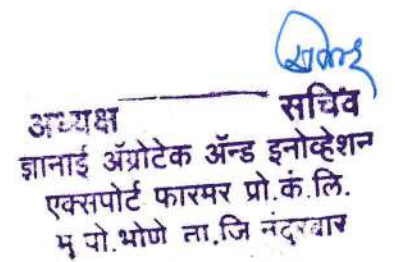 अध्यक्ष सचिव
ज्ञानाई ॲग्रोटेक ॲन्ड इनोव्हेशन
एक्सपोर्ट फारमर प्रो.कं.लि.
मु पो.भोणे ता.जि नंदुरबार